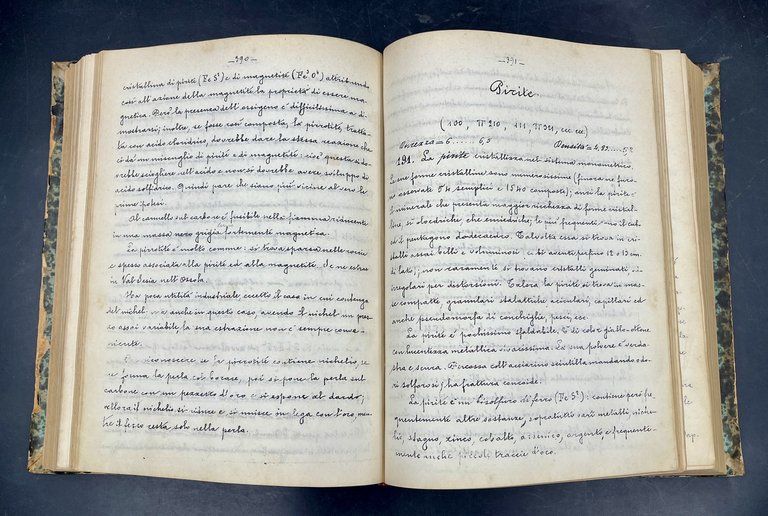 —390—
cristallina di piriti (Fe S²) e di magnetite (Fe³ O⁴) attribuendo
così all'azione della magnetite la proprietà di essere ma-
gnetica. Però la presenza dell'ossigeno è difficilissima a di-
mostrarsi; inoltre se fosse così composta, la pirrotite tratta-
ta con acido cloridrico, dovrebbe dare la stessa reazione che
ci dà un miscuglio di pirite e di magnetite: cioè questa do-
vrebbe sciogliere nell'acido e non si dovrebbe avere sviluppo di
acido solfidrico. Quindi pare che siano più vicine al vero le
prime ipotesi.
Al cannello sul carbone è fusibile nella fiamma riducente
in una massa nero grigia fortemente magnetica.
La pirrotite è molto comune: si trova sparsa nelle roccie
e spesso associata alla pirite ed alla magnetite. Se ne estrae
in Val Sesia nell'Ossola.
Ha poca utilità industriale eccetto il caso in cui contenga
del nichel: ma anche in questo caso, avendo il nichel un prez-
zo assai variabile, la sua estrazione non è sempre conve-
niente.
riconoscere se la pirrotite contiene nichelio, si
forma la perla col borace, poi si pone la perla sul
carbone con un pezzetto d'oro e si espone al dardo;
allora il nichelio si riduce e si unisce in lega con l'oro, men-
tre il ferro resta solo nella perla.
—391—
Pirite
(100, π 210, 111, π 321, ecc ecc)
Durezza = 6......6,5 Densità = 4,83.....5,2
191. La pirite cristallizza nel sistema monometrico.
Le sue forme cristalline sono numerosissime (finora ne furo-
no osservate 54 semplici e 1540 composte); anzi la pirite è
il minerale che presenta maggior ricchezza di forme cristal-
line, sì oloedriche che emiedriche; le più frequenti sono il cubo
ed il pentagono dodecaedro. Talvolta essa si trova in cri-
stalli assai belli e voluminosi (aventi perfino 12 o 13 cm.
di lato); non raramente si trovano cristalli geminati od
irregolari per distorsioni. Talora la pirite si trova in mas-
se compatte, granulari stalattitiche aciculari, capillari ed
anche pseudomorfa di conchiglie, pesci, ecc.
La pirite è pochissimo sfaldabile. È di color giallo-ottone
con lucentezza metallica vivacissima. La sua polvere è verda-
stra e scura. Percossa coll'acciarino scintilla mandando odo-
re solforoso; ha frattura concoide.
La pirite è un bisolfuro di ferro (Fe S²): contiene però fre-
quentemente altre sostanze, sopratutto varii metalli niche-
lio, stagno, zinco, cobalto, arsenico, argento e frequente-
mente anche piccole traccie d'oro.